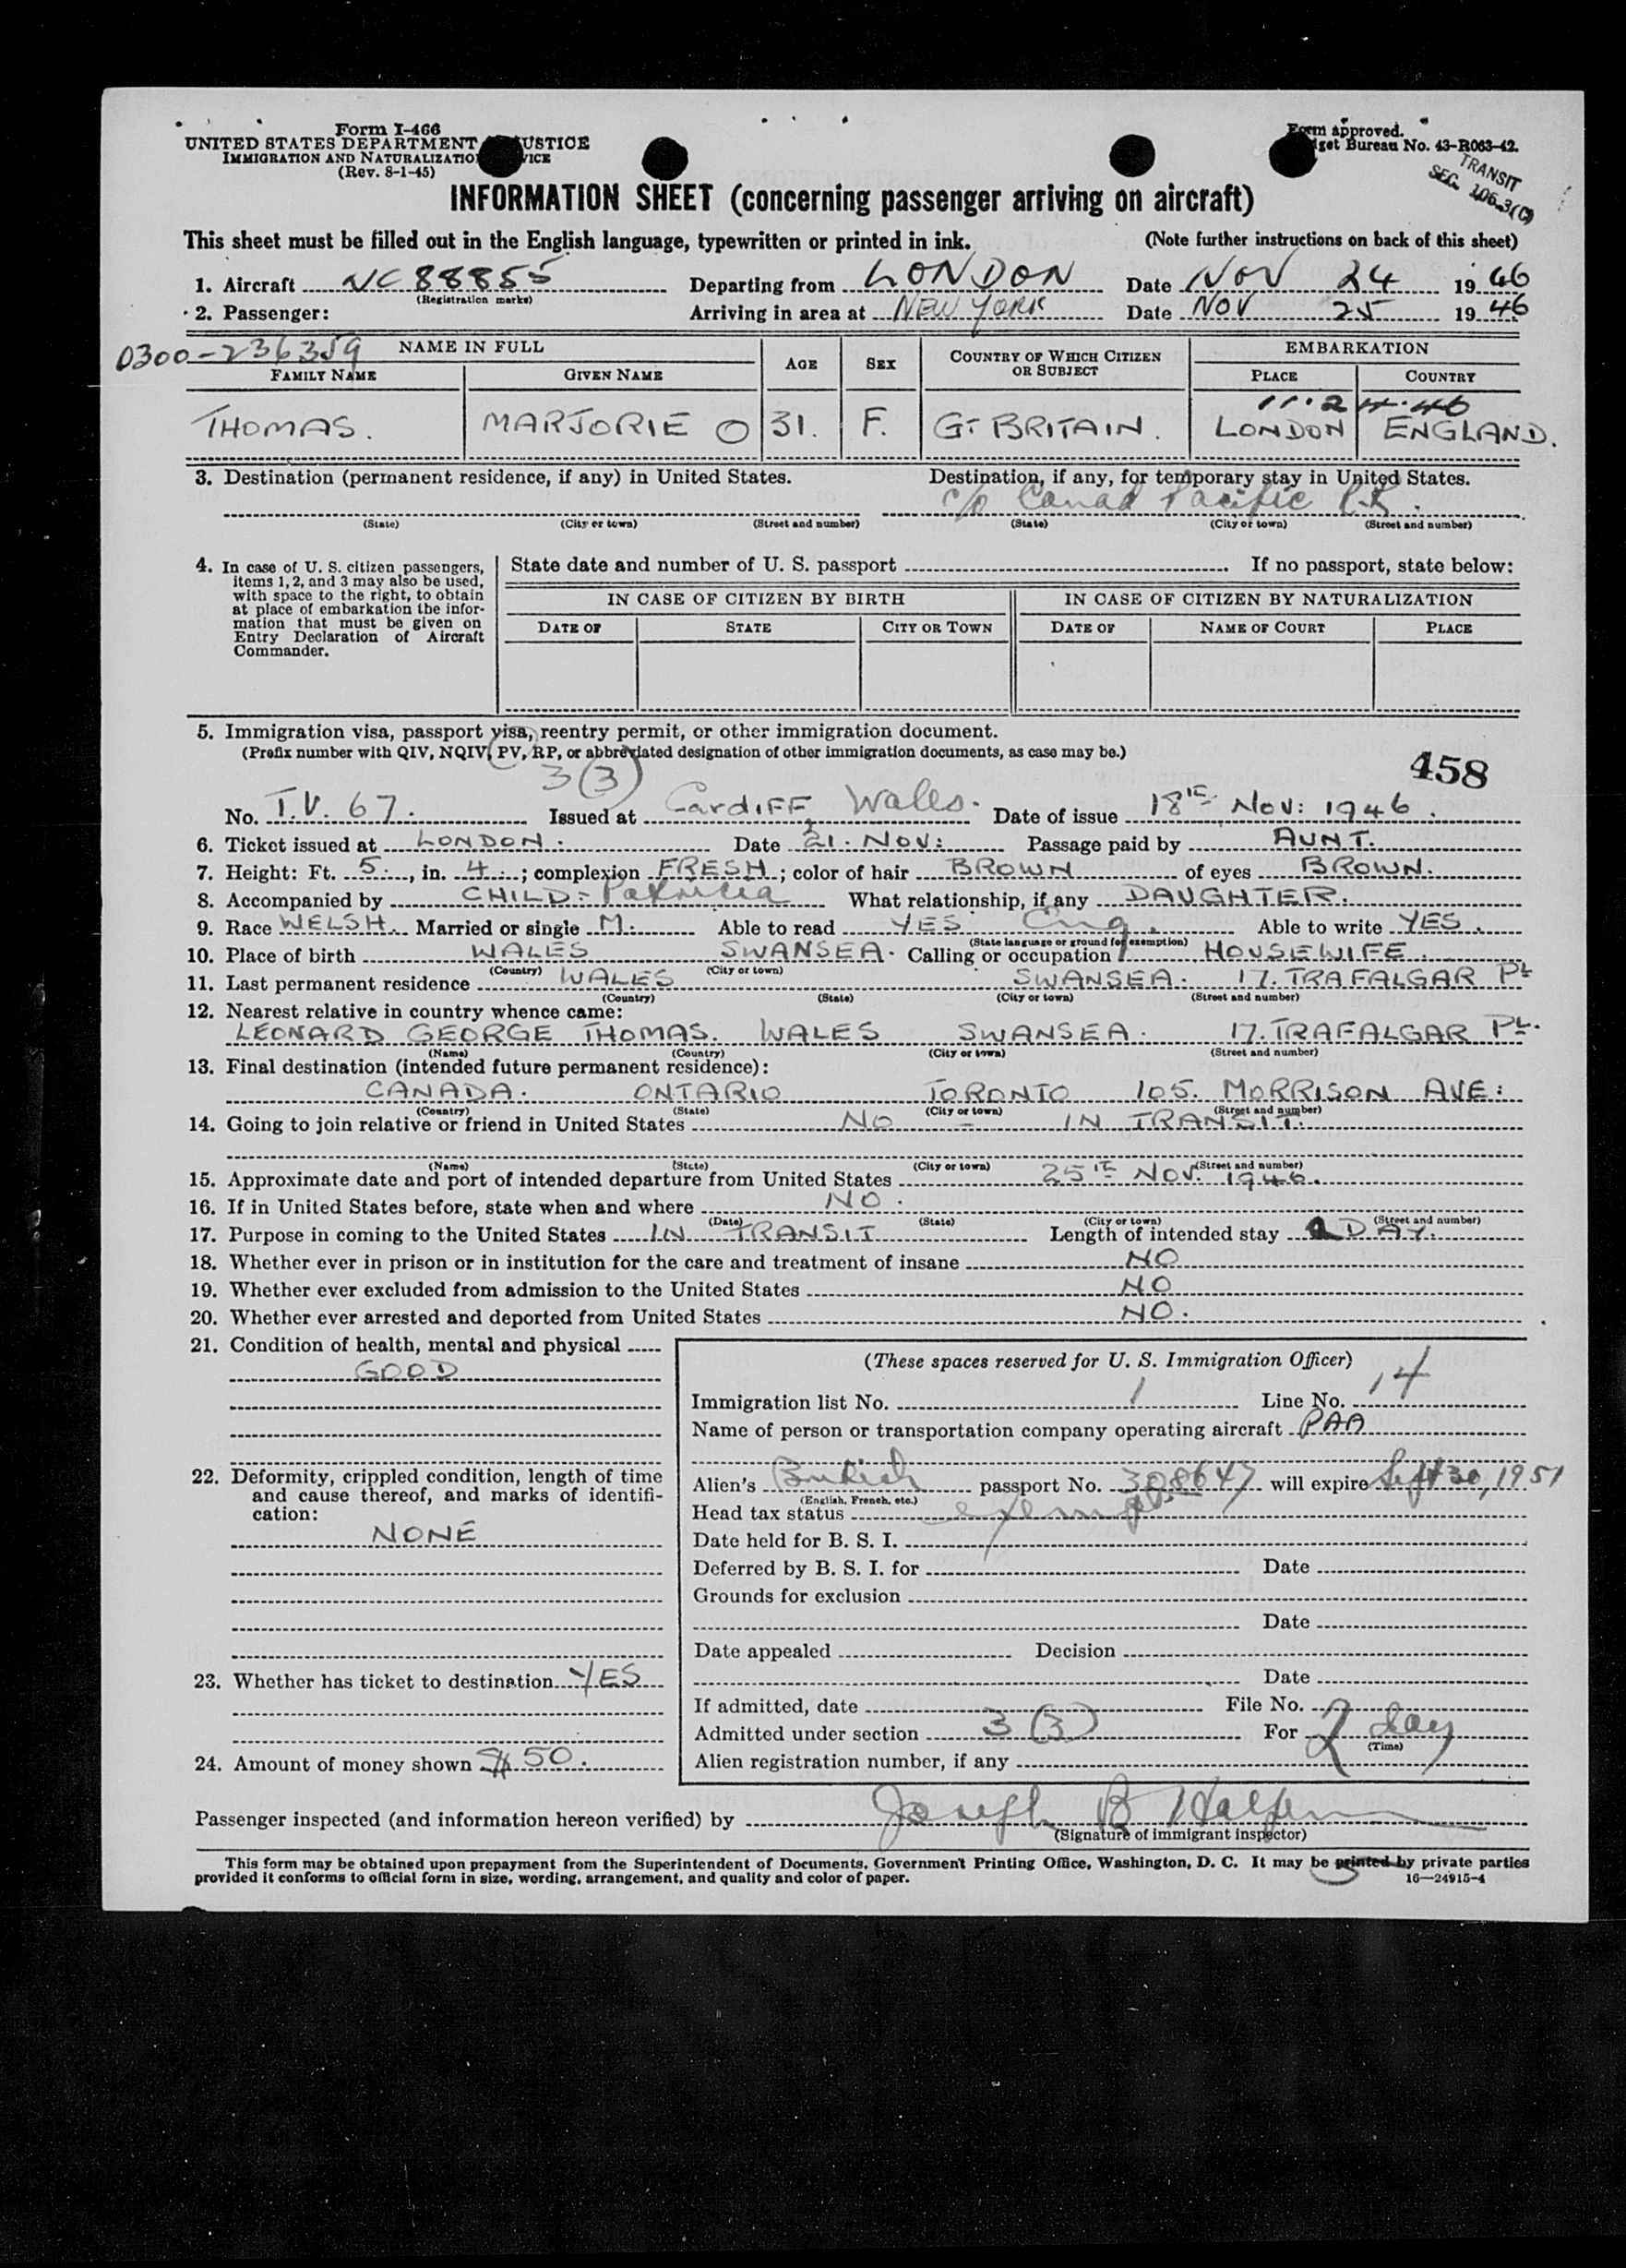 Form I-466
UNITED STATES DEPARTMENT JUSTICE
IMMIGRATION AND NATURALIZATION SERVICE
(Rev. 8-1-45)
Form approved.
Budget Bureau No. 43-R063-42.
TRANSIT
SEC. 106.3(C)
INFORMATION SHEET (concerning passenger arriving on aircraft)
This sheet must be filled out in the English language, typewritten or printed in ink. (Note further instructions on back of this sheet)
1. Aircraft NC 88855 Departing from LONDON Date NOV 24 1946
(Registration marks)
2. Passenger: Arriving in area at NEW YORK Date NOV 25 1946
0300-236359
NAME IN FULL AGE SEX COUNTRY OF WHICH CITIZEN OR SUBJECT EMBARKATION
FAMILY NAME GIVEN NAME PLACE COUNTRY
11.24.46
THOMAS. MARJORIE O 31. F. GT BRITAIN. LONDON ENGLAND.
3. Destination (permanent residence, if any) in United States. Destination, if any, for temporary stay in United States.
c/o Canad Pacific
(State) (City or town) (Street and number) (State) (City or town) (Street and number)
4. In case of U. S. citizen passengers, items 1, 2, and 3 may also be used, with space to the right, to obtain at place of embarkation the information that must be given on Entry Declaration of Aircraft Commander.
State date and number of U. S. passport If no passport, state below:
IN CASE OF CITIZEN BY BIRTH IN CASE OF CITIZEN BY NATURALIZATION
DATE OF STATE CITY OR TOWN DATE OF NAME OF COURT PLACE
5. Immigration visa, passport visa, reentry permit, or other immigration document.
(Prefix number with QIV, NQIV, PV, RP, or abbreviated designation of other immigration documents, as case may be.)
458
3(3)
No. T.V. 67. Issued at Cardiff, Wales. Date of issue 18TH Nov: 1946.
6. Ticket issued at LONDON. Date 21. NOV: Passage paid by AUNT.
7. Height: Ft. 5., in. 4.; complexion FRESH; color of hair BROWN of eyes BROWN.
8. Accompanied by CHILD- Patricia What relationship, if any DAUGHTER.
9. Race WELSH. Married or single M. Able to read YES Eng. Able to write YES.
(State language or ground for exemption)
10. Place of birth WALES SWANSEA. Calling or occupation HOUSEWIFE.
(Country) (City or town)
11. Last permanent residence WALES SWANSEA. 17. TRAFALGAR PL
(Country) (State) (City or town) (Street and number)
12. Nearest relative in country whence came:
LEONARD GEORGE THOMAS. WALES SWANSEA. 17. TRAFALGAR PL.
(Name) (Country) (City or town) (Street and number)
13. Final destination (intended future permanent residence):
CANADA. ONTARIO TORONTO 105. MORRISON AVE:
(Country) (State) (City or town) (Street and number)
14. Going to join relative or friend in United States NO - IN TRANSIT.
(Name) (State) (City or town) (Street and number)
15. Approximate date and port of intended departure from United States 25TH NOV. 1946.
16. If in United States before, state when and where NO.
(Date) (State) (City or town) (Street and number)
17. Purpose in coming to the United States IN TRANSIT Length of intended stay DAY.
18. Whether ever in prison or in institution for the care and treatment of insane NO
19. Whether ever excluded from admission to the United States NO
20. Whether ever arrested and deported from United States NO.
21. Condition of health, mental and physical
GOOD
22. Deformity, crippled condition, length of time and cause thereof, and marks of identification:
NONE
23. Whether has ticket to destination YES
24. Amount of money shown $ 50.
(These spaces reserved for U. S. Immigration Officer)
Immigration list No. 1 Line No. 14
Name of person or transportation company operating aircraft PAA
Alien's British passport No. 308647 will expire Sept 30, 1951
(English, French, etc.)
Head tax status exempt
Date held for B. S. I.
Deferred by B. S. I. for Date
Grounds for exclusion
Date
Date appealed Decision
Date
If admitted, date File No.
Admitted under section 3(3) For 2 day
(Time)
Alien registration number, if any
Passenger inspected (and information hereon verified) by Joseph B Halpern
(Signature of immigrant inspector)
This form may be obtained upon prepayment from the Superintendent of Documents, Government Printing Office, Washington, D. C. It may be printed by private parties
provided it conforms to official form in size, wording, arrangement, and quality and color of paper. 16—24915-4